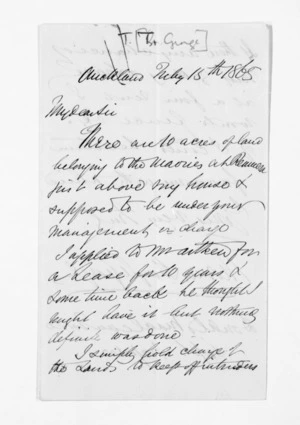 Auckland July 15th 1865
My dear Sir
There are 10 acres of land
belonging to the Maories at Remuera
just above my house &
supposed to be under your
management or charge
I applied to Mr Aitken for
a Lease for 10 years &
some time back he thought I
might have it but nothing
definite was done
I simply hold charge of
the Lands to keep off intruders